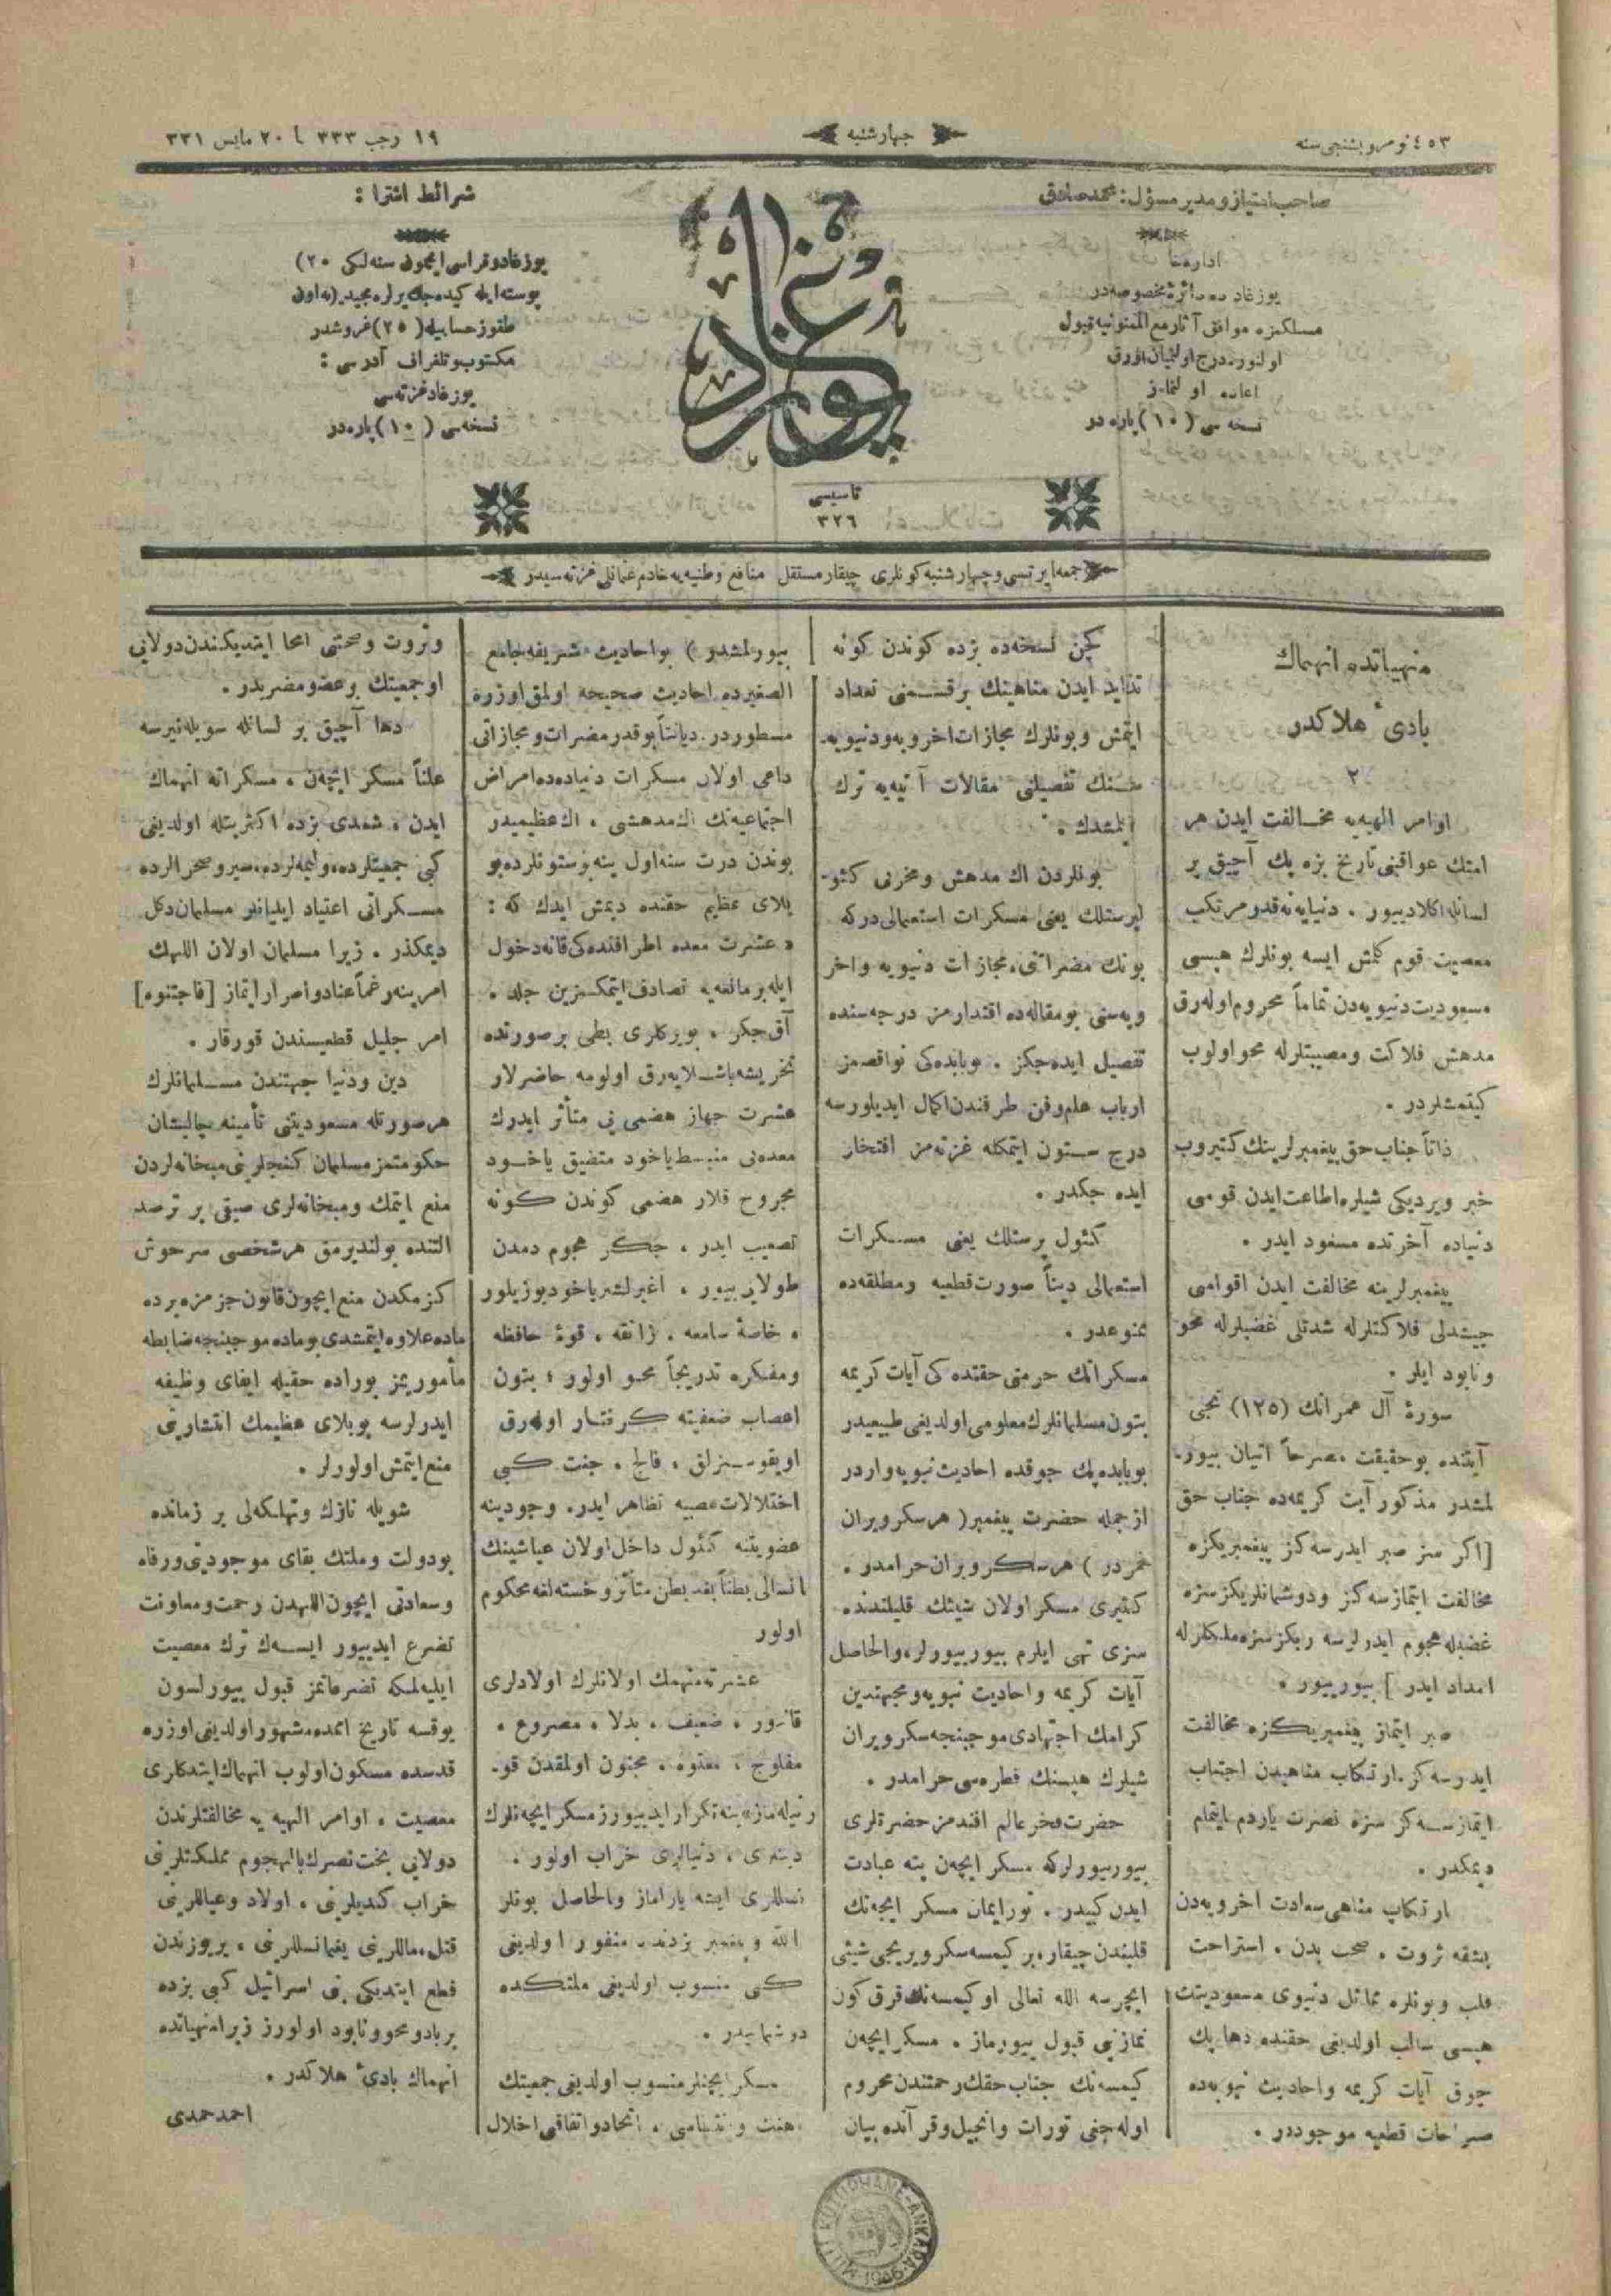 ٤٥٣ نومرو بشنجی سنه
چهارشنبه
١٩ رجب ٣٣٣ ٢٠ مایس ٣٣١
صاحب امتیاز و مدیر مسؤل : محمد صادق
یوزغادده دائرهٔ مخصوصه در
مسلكمزه موافق آثار مع الممنونیه قبول
اولنور درج اولنمیان اوراق
اعاده اولنماز
نسخه سی (١٠) پاره در
یوزغاد
تأسیسی
٣٢٦
شرائط اشترا :
یوزغاد و قراسی ایچون سنه لكی (٢٠)
پوسته ایله كیده جك یرلره مجیدیه اون
طقوز حسابیله (٢٥) غروشدر
مكتوب و تلغراف آدرسی :
یوزغاد غزته سی
نسخه سی (١٠) پاره در
جمعه ایرتسی و چهارشنبه كونلری چیقار مستقل منافع وطنیه یه خادم عثمانلی غزته سیدر
منهیاتده انهماك
بادیٔ هلاكدر
٢
اوامر الهیه یه مخالفت ایدن هر
امتك عواقبنی تاریخ بزه پك آچیق بر
لسانله اكلادییور . دنیایه نه قدر مرتكب
معصیت قوم كلمش ایسه بونلرك هپسی
مسعودیت دنیویه دن تماماً محروم اوله رق
مدهش فلاكت و مصیبتلرله محو اولوب
كیتمشلردر .
ذاتاً جناب حق پیغمبرلرینك كتیروب
خبر ویردیكی شیلره اطاعت ایدن قومی
دنیاده آخرتده مسعود ایدر .
پیغمبرلرینه مخالفت ایدن اقوامی
چیشدلی فلاكتلرله شدتلی غضبلرله محو
و نابود ایلر .
سورهٔ آل عمرانك (١٢٥) نجی
آیتنده بو حقیقت مصرحاً اتیان بیور-
لمشدر مذكور آیت كریمه ده جناب حق
[اكر سز صبر ایدرسه كز پیغمبریكزه
مخالفت ایتمازسه كز و دوشمانلریكز سزه
غضبله هجوم ایدرلرسه ربكز سزه ملكلرله
امداد ایدر] بیورییور .
صبر ایتماز پیغمبریكزه مخالفت
ایدرسه كز . ارتكاب مناهیدن اجتناب
ایتمازسه كز سزه نصرت یاردم ایتمام
دیمكدر .
ارتكاب مناهی سعادت اخرویه دن
بشقه ثروت ، صحت بدن ، استراحت
قلب و بونلره مماثل دنیوی مسعودیتك
هپسی سالب اولدیغی حقنده دها پك
چوق آیات كریمه و احادیث نبویه ده
صراحات قطعیه موجوددر .
كچن نسخه ده بزده كوندن كونه
تزاید ایدن مناهینك بر قسمنی تعداد
ایتمش و بونلرك مجازات اخرویه و دنیویه-
سنك تفصیلنی مقالات آتیه یه ترك
ایلمشدك .
بونلردن اك مدهش و مخربی كئو-
لپرستلك یعنی مسكرات استعمالی دركه
بونك مضراتی ، مجازات دنیویه و اخر
ویه سنی بو مقاله ده اقتدارمز درجه سنده
تفصیل ایده جكز . بوبابده كی نواقصمز
ارباب علم و فن طرفندن اكمال ایدیلورسه
درج ستون ایتمكله غزته مز افتخار
ایده جكدر .
كئول پرستلك یعنی مسكرات
استعمالی دیناً صورت قطعیه و مطلقه ده
ممنوعدر .
مسكراتك حرمتی حقنده كی آیات كریمه
بتون مسلمانلرك معلومی اولدیغی طبیعیدر
بوبابده پك چوقده احادیث نبویه واردر
ازجمله حضرت پیغمبر ( هر سكر ویران
خمردر ) هر سكر ویران حرامدر .
كثیری مسكر اولان شیئك قلیلندنده
سزی نهی ایلرم بیوریبورلر ، والحاصل
آیات كریمه و احادیث نبویه و مجتهدین
كرامك اجتهادی موجبنجه سكر ویران
شیلرك هپسنك قطره سی حرامدر .
حضرت فخر عالم افندمز حضرتلری
بیوریبورلركه مسكر ایچن پته عبادت
ایدن كیبدر . نور ایمان مسكر ایچه نك
قلبندن چیقار ، بر كیمسه سكر ویریجی شیئی
ایچرسه الله تعالی او كیمسه نك قرق كون
نمازینی قبول بیورماز . مسكر ایچن
كیمسه نك جناب حقك رحمتندن محروم
اوله جغی تورات و انجیل و قرآنده بیان
بیورلمشدر ) بو احادیث شریفه جامع
الصغیرده احادیث صحیحه اولمق اوزره
مسطوردر . دیانتاً بوقدر مضرات و مجازاتی
داعی اولان مسكرات دنیاده ده امراض
اجتماعیه نك اك مدهشی ، اك عظیمیدر
بوندن درت سنه اول ینه بو ستونلرده بو
بلای عظیم حقنده دیمش ایدك كه :
« عشرت معده اطرافنده كی قانه دخول
ایله بر مانعه یه تصادف ایتمكسزین جلد ،
آق جكر ، بوبركلری بطی بر صورتده
تخریشه باشلایه رق اولومه حاضرلار
عشرت جهاز هضمی یی متأثر ایدرك
معده یی منبسط یاخود متضیق یاخود
مجروح قلار هضمی كوندن كونه
تصعیب ایدر ، جكر هجوم دمدن
طولایی بیور ، اغیرلشیر یاخود بوزیلور
، خاصهٔ سامعه ، ذائقه ، قوهٔ حافظه
و مفكره تدریجاً محو اولور ؛ بتون
اعصاب ضعفیته كرفتار اوله رق
اویقوسزلق ، فالج ، جنت كبی
اختلالات عصبیه تظاهر ایدر . وجودینه
عضویتنه كئول داخل اولان عیاشینك
انسالی بطناً بعد بطن متأثر و خسته لغه محكوم
اولور
عشرته منهمك اولانلرك اولادلری
قانبور ، ضعیف ، بدلا ، مصروع ،
مفلوج ، معتوه ، مجنون اولمقدن قو-
رتیله ماز » ینه تكرار ایدیبورز مسكر ایچه نلرك
دینلری ، دنیالری خراب اولور .
نسللری ایشه یاراماز والحاصل بونلر
الله و پیغمبر نزدنده منفور اولدیغی
كبی منسوب اولدیغی ملتكده
دوشمانیدر .
مسكر ایچنلر منسوب اولدیغی جمعیتك
اتحاد و اتفاقی اخلال
و ثروت و صحتنی امحا ایتدیكندن دولایی
او جمعیتك بر عضو مضریدر .
دها آچیق بر لسانله سویله نیرسه
علناً مسكر ایچه ن ، مسكراته انهماك
ایدن ، شمدی بزده اكثریتله اولدیغی
كبی جمعیتلرده ، ولیمه لرده ، سیر و صحرالرده
مسكراتی اعتیاد ایدیانلر مسلمان دكل
دیمكدر . زیرا مسلمان اولان اللهك
امرینه رغماً عناد و اصرار ایتماز [فاجتنبوه]
امر جلیل قطعیسندن قورقار .
دین و دنیا جهتندن مسلمانلرك
هر صورتله مسعودیتنی تأمینه چالیشان
حكومتمز مسلمان كنجلرینی میخانه لردن
منع ایتمك و میخانه لری صیقی بر ترصد
التنده بولندیرمق هر شخصی سرخوش
كزمكدن منع ایچون قانون جزامزه برده
ماده علاوه ایتمشدی بو ماده موجبنجه ضابطه
مأمورینمز بوراده حقیله ایفای وظیفه
ایدرلرسه بو بلای عظیمك انتشارینی
منع ایتمش اولورلر .
شویله نازك و تهلكه لی بر زمانده
بو دولت و ملتك بقای موجودیتی و رفاه
و سعادتی ایچون اللهدن رحمت و معاونت
تضرع ایدییور ایسه ك ترك معصیت
ایلیه لمكه تضرعاتمز قبول بیورلسون
یوقسه تاریخ امده مشهور اولدیغی اوزره
قدسده مسكون اولوب انهماك ایتدكلری
معصیت ، اوامر الهیه یه مخالفتلرندن
دولایی بخت نصرك بالهجوم مملكتلرینی
خراب كندیلرینی ، اولاد و عیاللرینی
قتل ، ماللرینی یغما نسللرینی ، یریوزندن
قطع ایتدیكی بنی اسرائیل كبی بزده
بر باد و محو و نابود اولورز زیرا منهیاتده
انهماك بادیٔ هلاكدر .
احمد حمدی
MİLLİ KÜTÜPHANE-ANKARA
1946